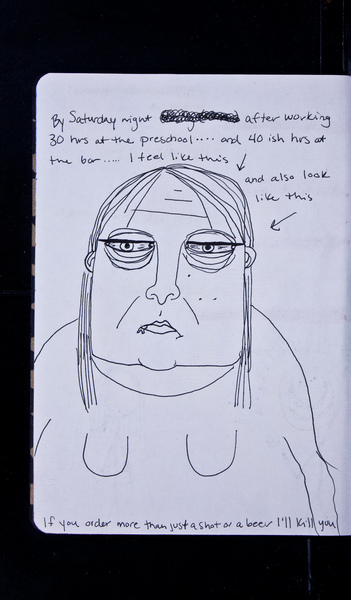 By Saturday night after working
30 hrs at the preschool.... and 40 ish hrs at
the bar..... I feel like this
and also look
like this
If you order more than just a shot or a beer I'll kill you